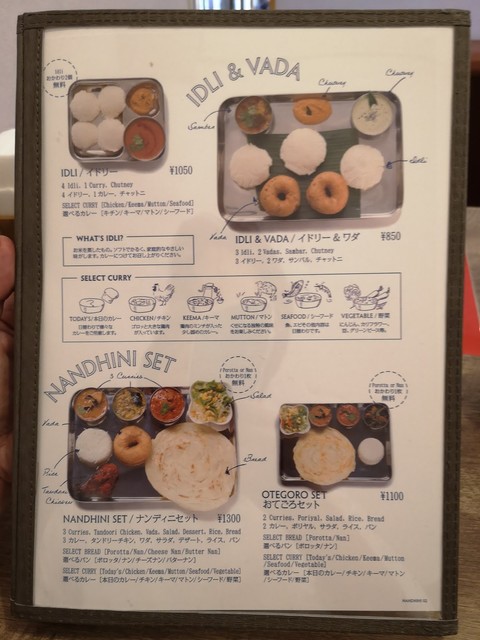 Idli
おかわり2個
無料
IDLI & VADA
Chutney
Chutney
Sambar
Idli
Vada
IDLI / イドリー ¥1050
4 Idli, 1 Curry, Chutney
4 イドリー、1カレー、チャットニ
SELECT CURRY [Chicken/Keema/Mutton/Seafood]
選べるカレー [チキン/キーマ/マトン/シーフード]
IDLI & VADA / イドリー & ワダ ¥850
3 Idli, 2 Vadas, Sambar, Chutney
3 イドリー、2 ワダ、サンバル、チャットニ
WHAT'S IDLI?
SELECT CURRY
TODAY'S/本日のカレー
CHICKEN/チキン
KEEMA/キーマ
MUTTON/マトン
SEAFOOD/シーフード
VEGETABLE/野菜
NANDHINI SET
3 Curries
Porotta or Nan
おかわり1枚
無料
Salad
Vada
Rice
Tandoori
Chicken
Bread
Porotta or Nan
おかわり1枚
無料
NANDHINI SET / ナンディニセット ¥1300
3 Curries, Tandoori Chicken, Vada, Salad, Dessert, Rice, Bread
3 カレー、タンドリーチキン、ワダ、サラダ、デザート、ライス、パン
SELECT BREAD [Porotta/Nan/Cheese Nan/Butter Nan]
選べるパン [ポロッタ/ナン/チーズナン/バターナン]
SELECT CURRY [Today's/Chicken/Keema/Mutton/Seafood/Vegetable]
選べるカレー [本日のカレー/チキン/キーマ/マトン/シーフード/野菜]
OTEGORO SET ¥1100
おてごろセット
2 Curries, Poriyal, Salad, Rice, Bread
2 カレー、ポリヤル、サラダ、ライス、パン
SELECT BREAD [Porotta/Nan]
選べるパン [ポロッタ/ナン]
SELECT CURRY [Today's/Chicken/Keema/Mutton
/Seafood/Vegetable]
選べるカレー [本日のカレー/チキン/キーマ/マトン
/シーフード/野菜]